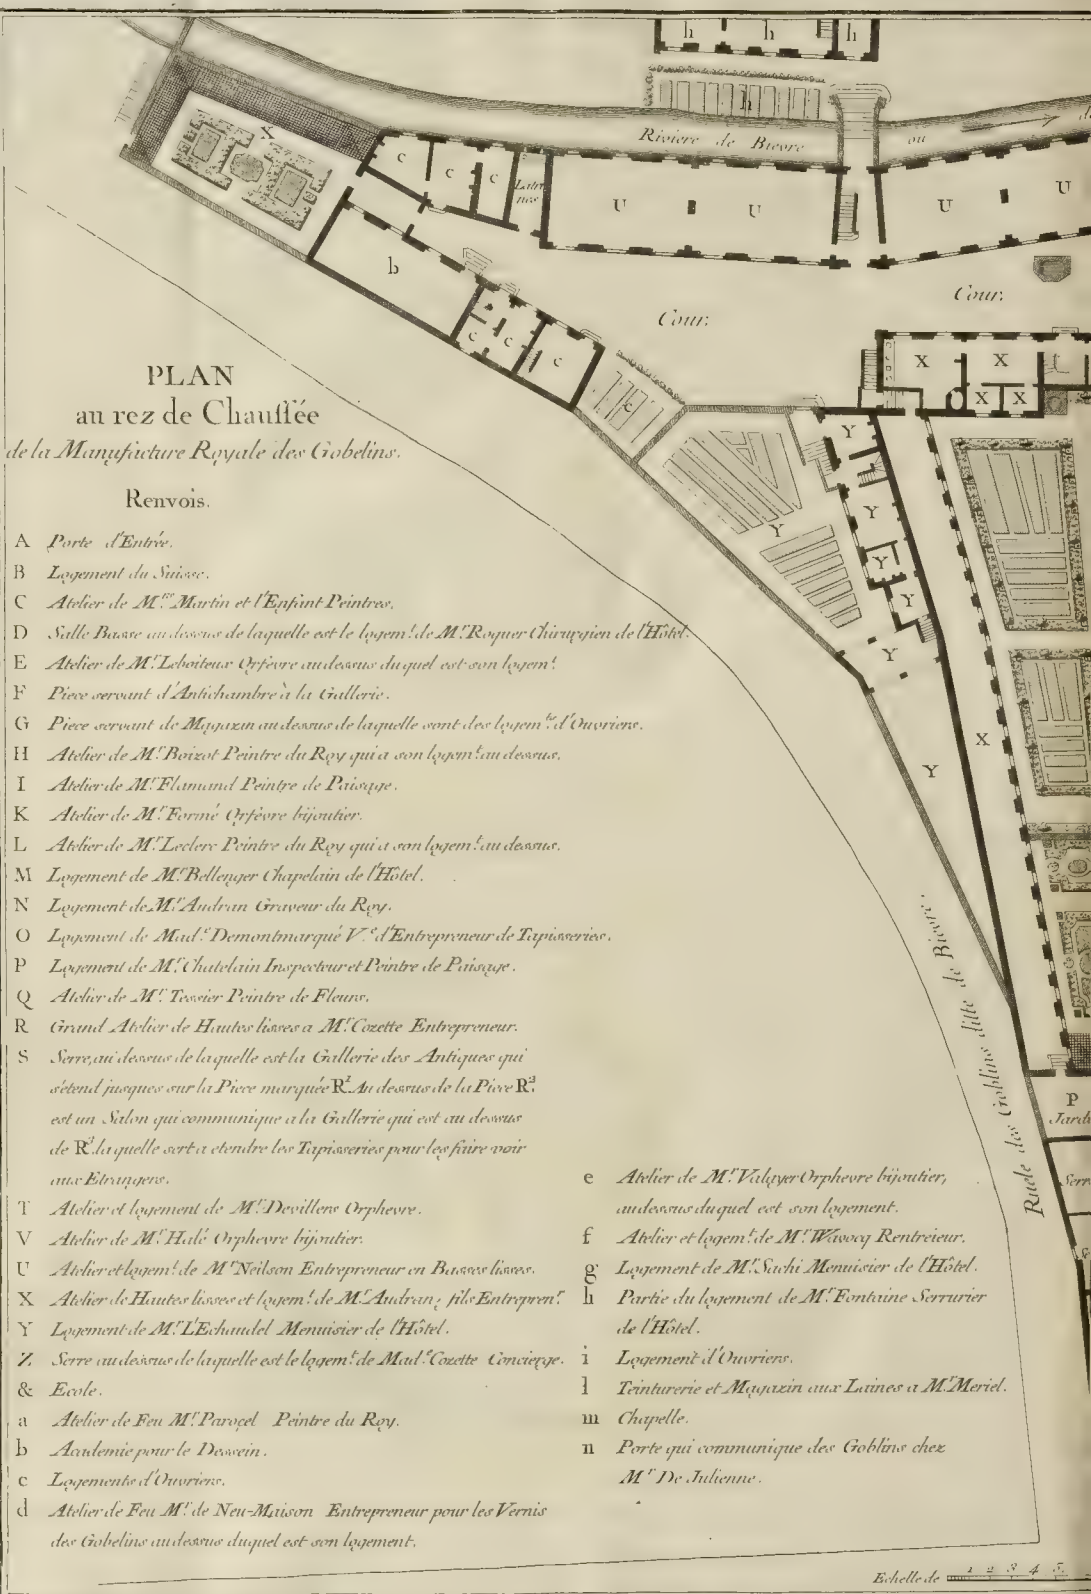 h h h
h
Riviere de Bievre ou
X
c c c
Latri
nes
U U U U
b
Cour. Cour.
c c c
c
X X
X X
Y
Y
Y
Y
Y
Y
X
Y
P
Jardi
Serre
Ruele des Goblins ditte de Bievre.
PLAN
au rez de Chaussée
de la Manufacture Royale des Gobelins.
Renvois.
A Porte d'Entrée.
B Logement du Suisse.
C Atelier de M.rs Martin et l'Enfant Peintres.
D Salle Basse au dessus de laquelle est le logem.t de M.r Roquer Chirurgien de l'Hôtel.
E Atelier de M.r Leboiteux Orfèvre au dessus du quel est son logem.t
F Piece servant d'Antichambre à la Gallerie.
G Piece servant de Magazin au dessus de laquelle sont des logem.ts d'Ouvriers.
H Atelier de M.r Boizot Peintre du Roy qui a son logem.t au dessus.
I Atelier de M.r Flamand Peintre de Paisage.
K Atelier de M.r Formé Orfèvre bijoutier.
L Atelier de M.r Leclerc Peintre du Roy qui a son logem.t au dessus.
M Logement de M.r Bellenger Chapelain de l'Hôtel.
N Logement de M.r Audran Graveur du Roy.
O Logement de Mad.e Demontmarqué V.e d'Entrepreneur de Tapisseries.
P Logement de M.r Chatelain Inspecteur et Peintre de Paisage.
Q Atelier de M.r Tessier Peintre de Fleurs.
R Grand Atelier de Hautes lisses a M.r Cozette Entrepreneur.
S Serre, au dessus de laquelle est la Gallerie des Antiques qui
s'étend jusques sur la Piece marquée R.2 Au dessus de la Piece R.3
est un Salon qui communique a la Gallerie qui est au dessus
de R.3 laquelle sert a etendre les Tapisseries pour les faire voir
aux Etrangers.
T Atelier et logement de M.r Devillers Orphevre.
V Atelier de M.r Halé Orphevre bijoutier.
U Atelier et logem.t de M.r Neilson Entrepreneur en Basses lisses.
X Atelier de Hautes lisses et logem.t de M.r Audran, fils Entrepren.r
Y Logement de M.r L'Echaudel Menuisier de l'Hôtel.
Z Serre au dessus de laquelle est le logem.t de Mad.e Cozette Concierge.
& Ecole.
a Atelier de Feu M.r Paroçel Peintre du Roy.
b Academie pour le Dessein.
c Logements d'Ouvriers.
d Atelier de Feu M.r de Neu-Maison Entrepreneur pour les Vernis
des Gobelins au dessus duquel est son logement.
e Atelier de M.r Valayer Orphevre bijoutier,
au dessus du quel est son logement.
f Atelier et logem.t de M.r Wavocq Rentreieur.
g Logement de M.r Sachi Menuisier de l'Hôtel.
h Partie du logement de M.r Fontaine Serrurier
de l'Hôtel.
i Logement d'Ouvriers.
l Teinturerie et Magazin aux Laines a M.r Meriel.
m Chapelle.
n Porte qui communique des Goblins chez
M.r De Julienne.
Echelle de 1 2 3 4 5